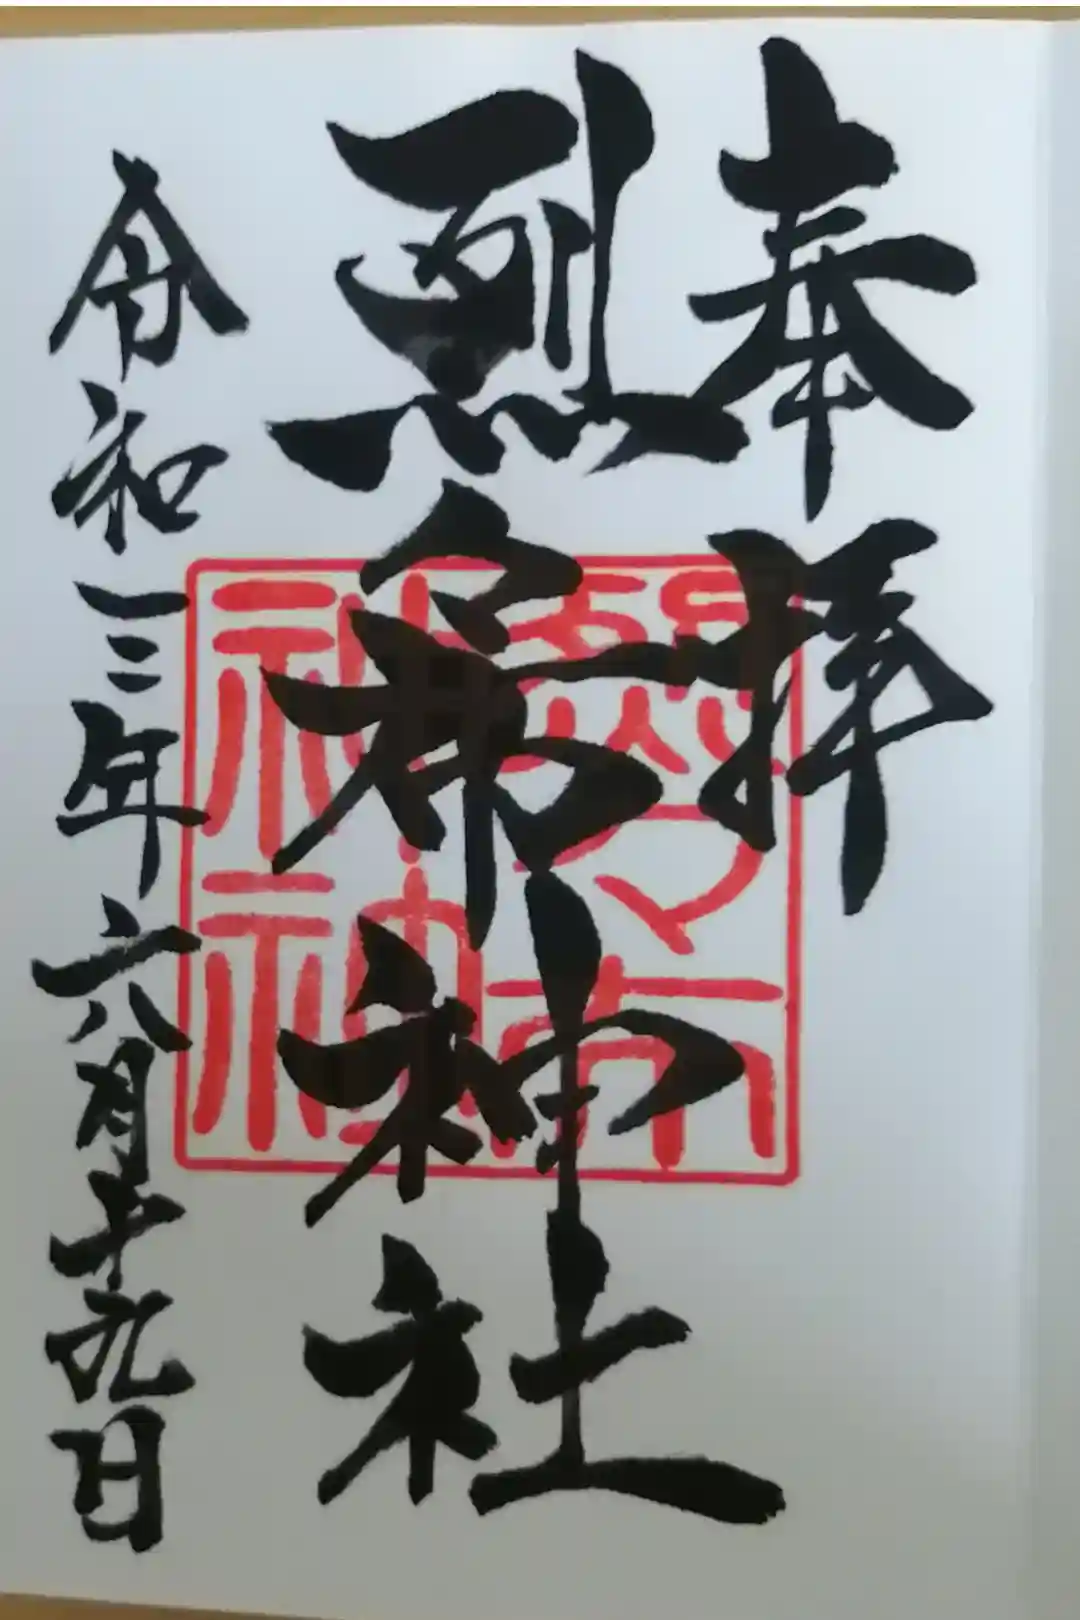 奉拝
烈々布神社
令和三年六月十九日
烈々布
神社